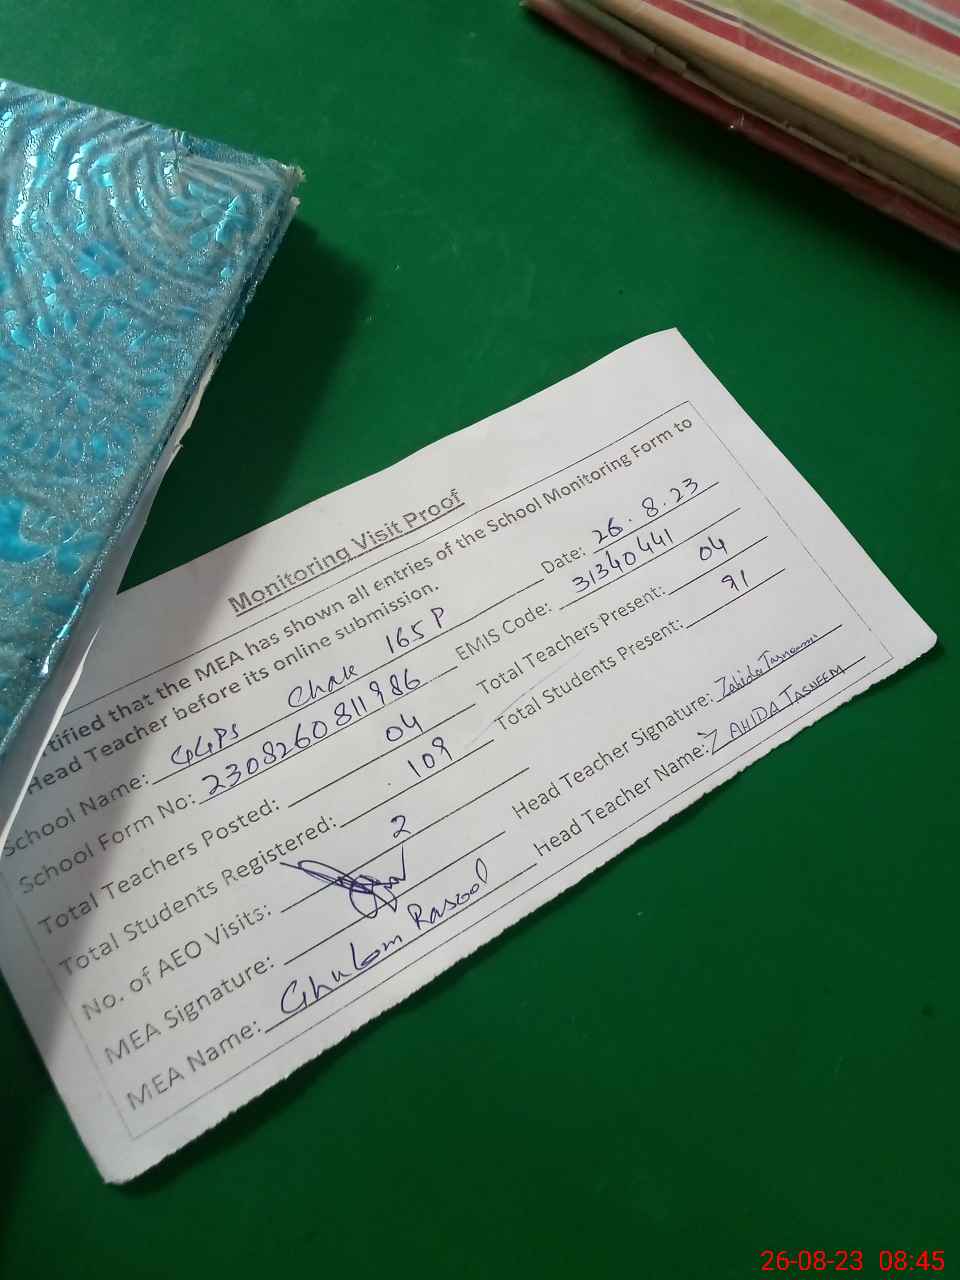 Monitoring Visit Proof
rtified that the MEA has shown all entries of the School Monitoring Form to
Head Teacher before its online submission.
School Name: GGPS Chak 165 P Date: 26.8.23
School Form No: 230826081 1986 EMIS Code: 31340441
Total Teachers Posted: 04 Total Teachers Present: 04
Total Students Registered: 109 Total Students Present: 91
No. of AEO Visits: 2
MEA Signature: Head Teacher Signature: Zahida Tasneem
MEA Name: Ghulam Rasool Head Teacher Name: ZAHIDA TASNEEM
26-08-23 08:45